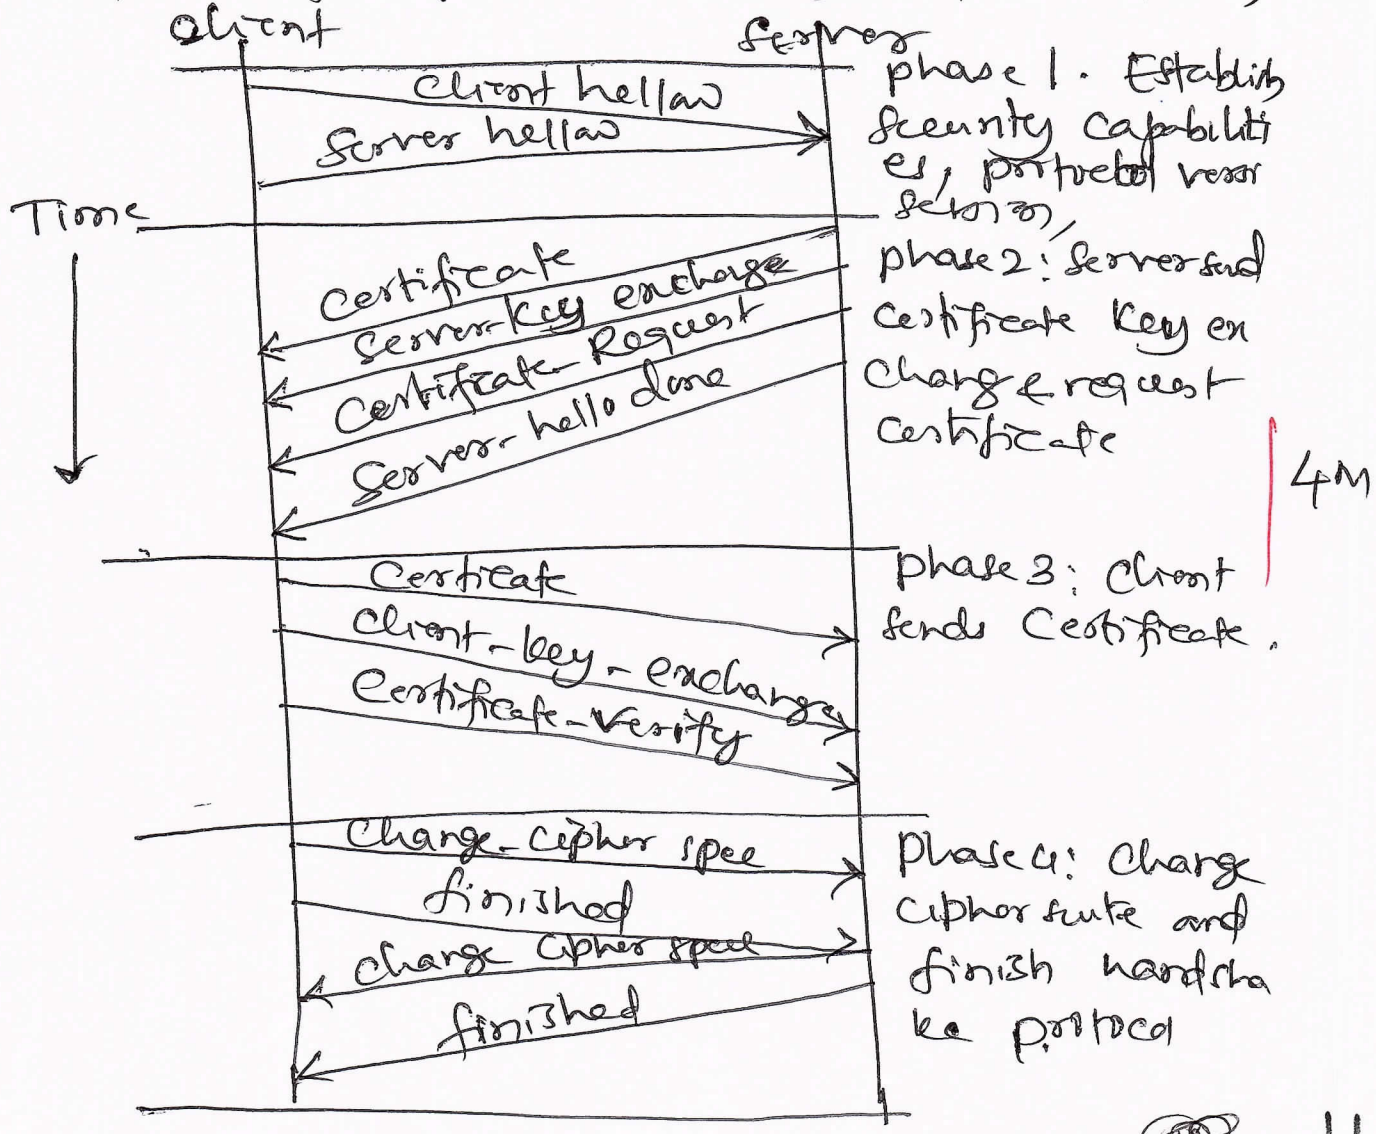 Client
Server
Client hellow
Server hellow
phase 1. Establish
security capabiliti
es, protocol verr
Time
Certificate
Server-key exchange
Certificate-Request
Server-hello done
phase 2: Server send
certificate key ex
change request
certificate
4M
Certicate
Client-key-exchange
Certificate-Verify
phase 3: Client
sends Certificate.
Change-cipher spec
finished
change cipher spec
finished
Phase 4: Change
cipher suite and
finish handsha
ke protocol